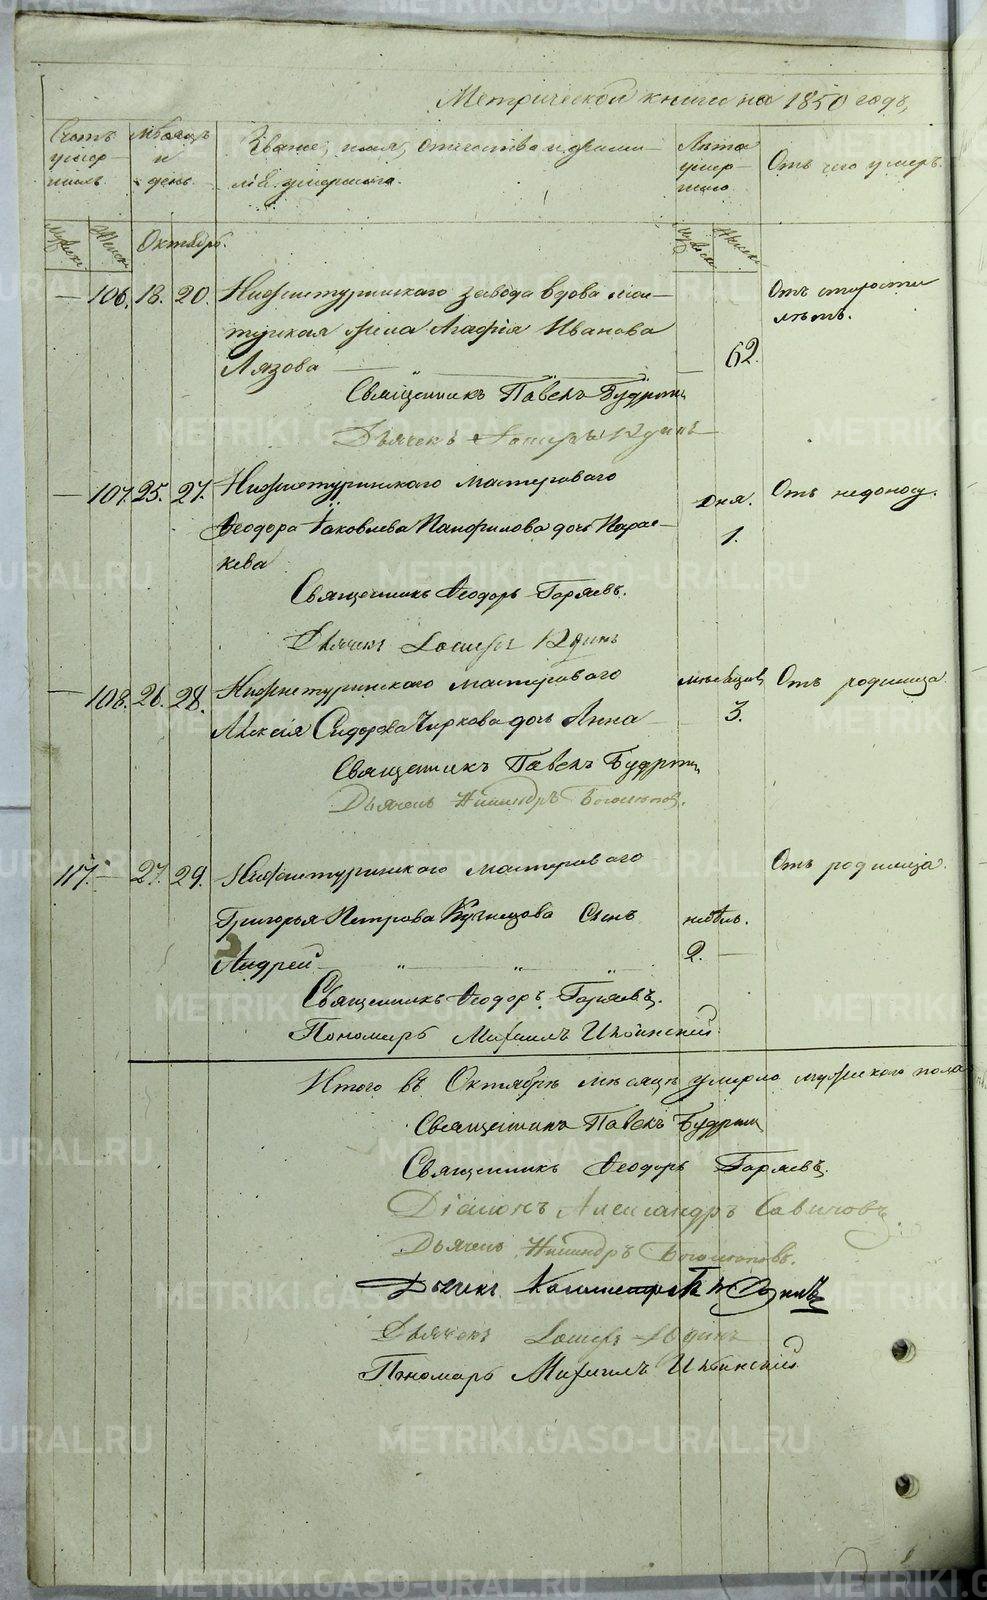 Метрической книги на 1850 годъ,
Счетъ умер-шихъ. Мѣсяцъ и день. Званіе, имя, отчество и фами-лія умершаго. Лѣта умер-шаго От чего умеръ.
Мужеск. Женск. Октябрь. Мужеск. Женск.
— 106. 18. 20. Нижнетуринскаго завода вдова мас-
терская жена Агафія Иванова
Лязова — 62. Отъ старости
лѣтъ.
Священникъ Павелъ Будрин
Дьячекъ Іосифъ Юдинъ
— 107. 25. 27. Нижнетуринскаго мастероваго дня. Отъ недоносу.
Ѳеодора Іаковлева Панфилова дочь Парас- 1.
кева
Священникъ Ѳеодоръ Горяевъ.
Дьячекъ Іосифъ Юдинъ
— 108. 26. 28. Нижнетуринскаго мастероваго мѣсяцов, Отъ родимца.
Алексія Сидорова Чиркова дочь Анна — 3.
Священникъ Павелъ Будрин
Дьячекъ Никандръ Боголѣпов.
117. — 27. 29. Нижнетуринскаго мастероваго Отъ родимца.
Григорья Петрова Кузнецова Сынъ недѣль.
Андрей — 2. —
Священникъ Ѳеодоръ Горяевъ.
Пономарь Михаилъ Ильинский
Итого въ Октябрѣ мѣсяцѣ умерло мужескаго пола
Священникъ Павелъ Будрин
Священникъ Ѳеодоръ Горяевъ.
Діаконъ Александръ Савиновъ.
Дьячекъ Никандръ Боголѣповъ.
Дьячекъ
Дьячекъ Іосифъ Юдинъ
Пономарь Михаилъ Ильинский
METRIKI.GASO-URAL.RU